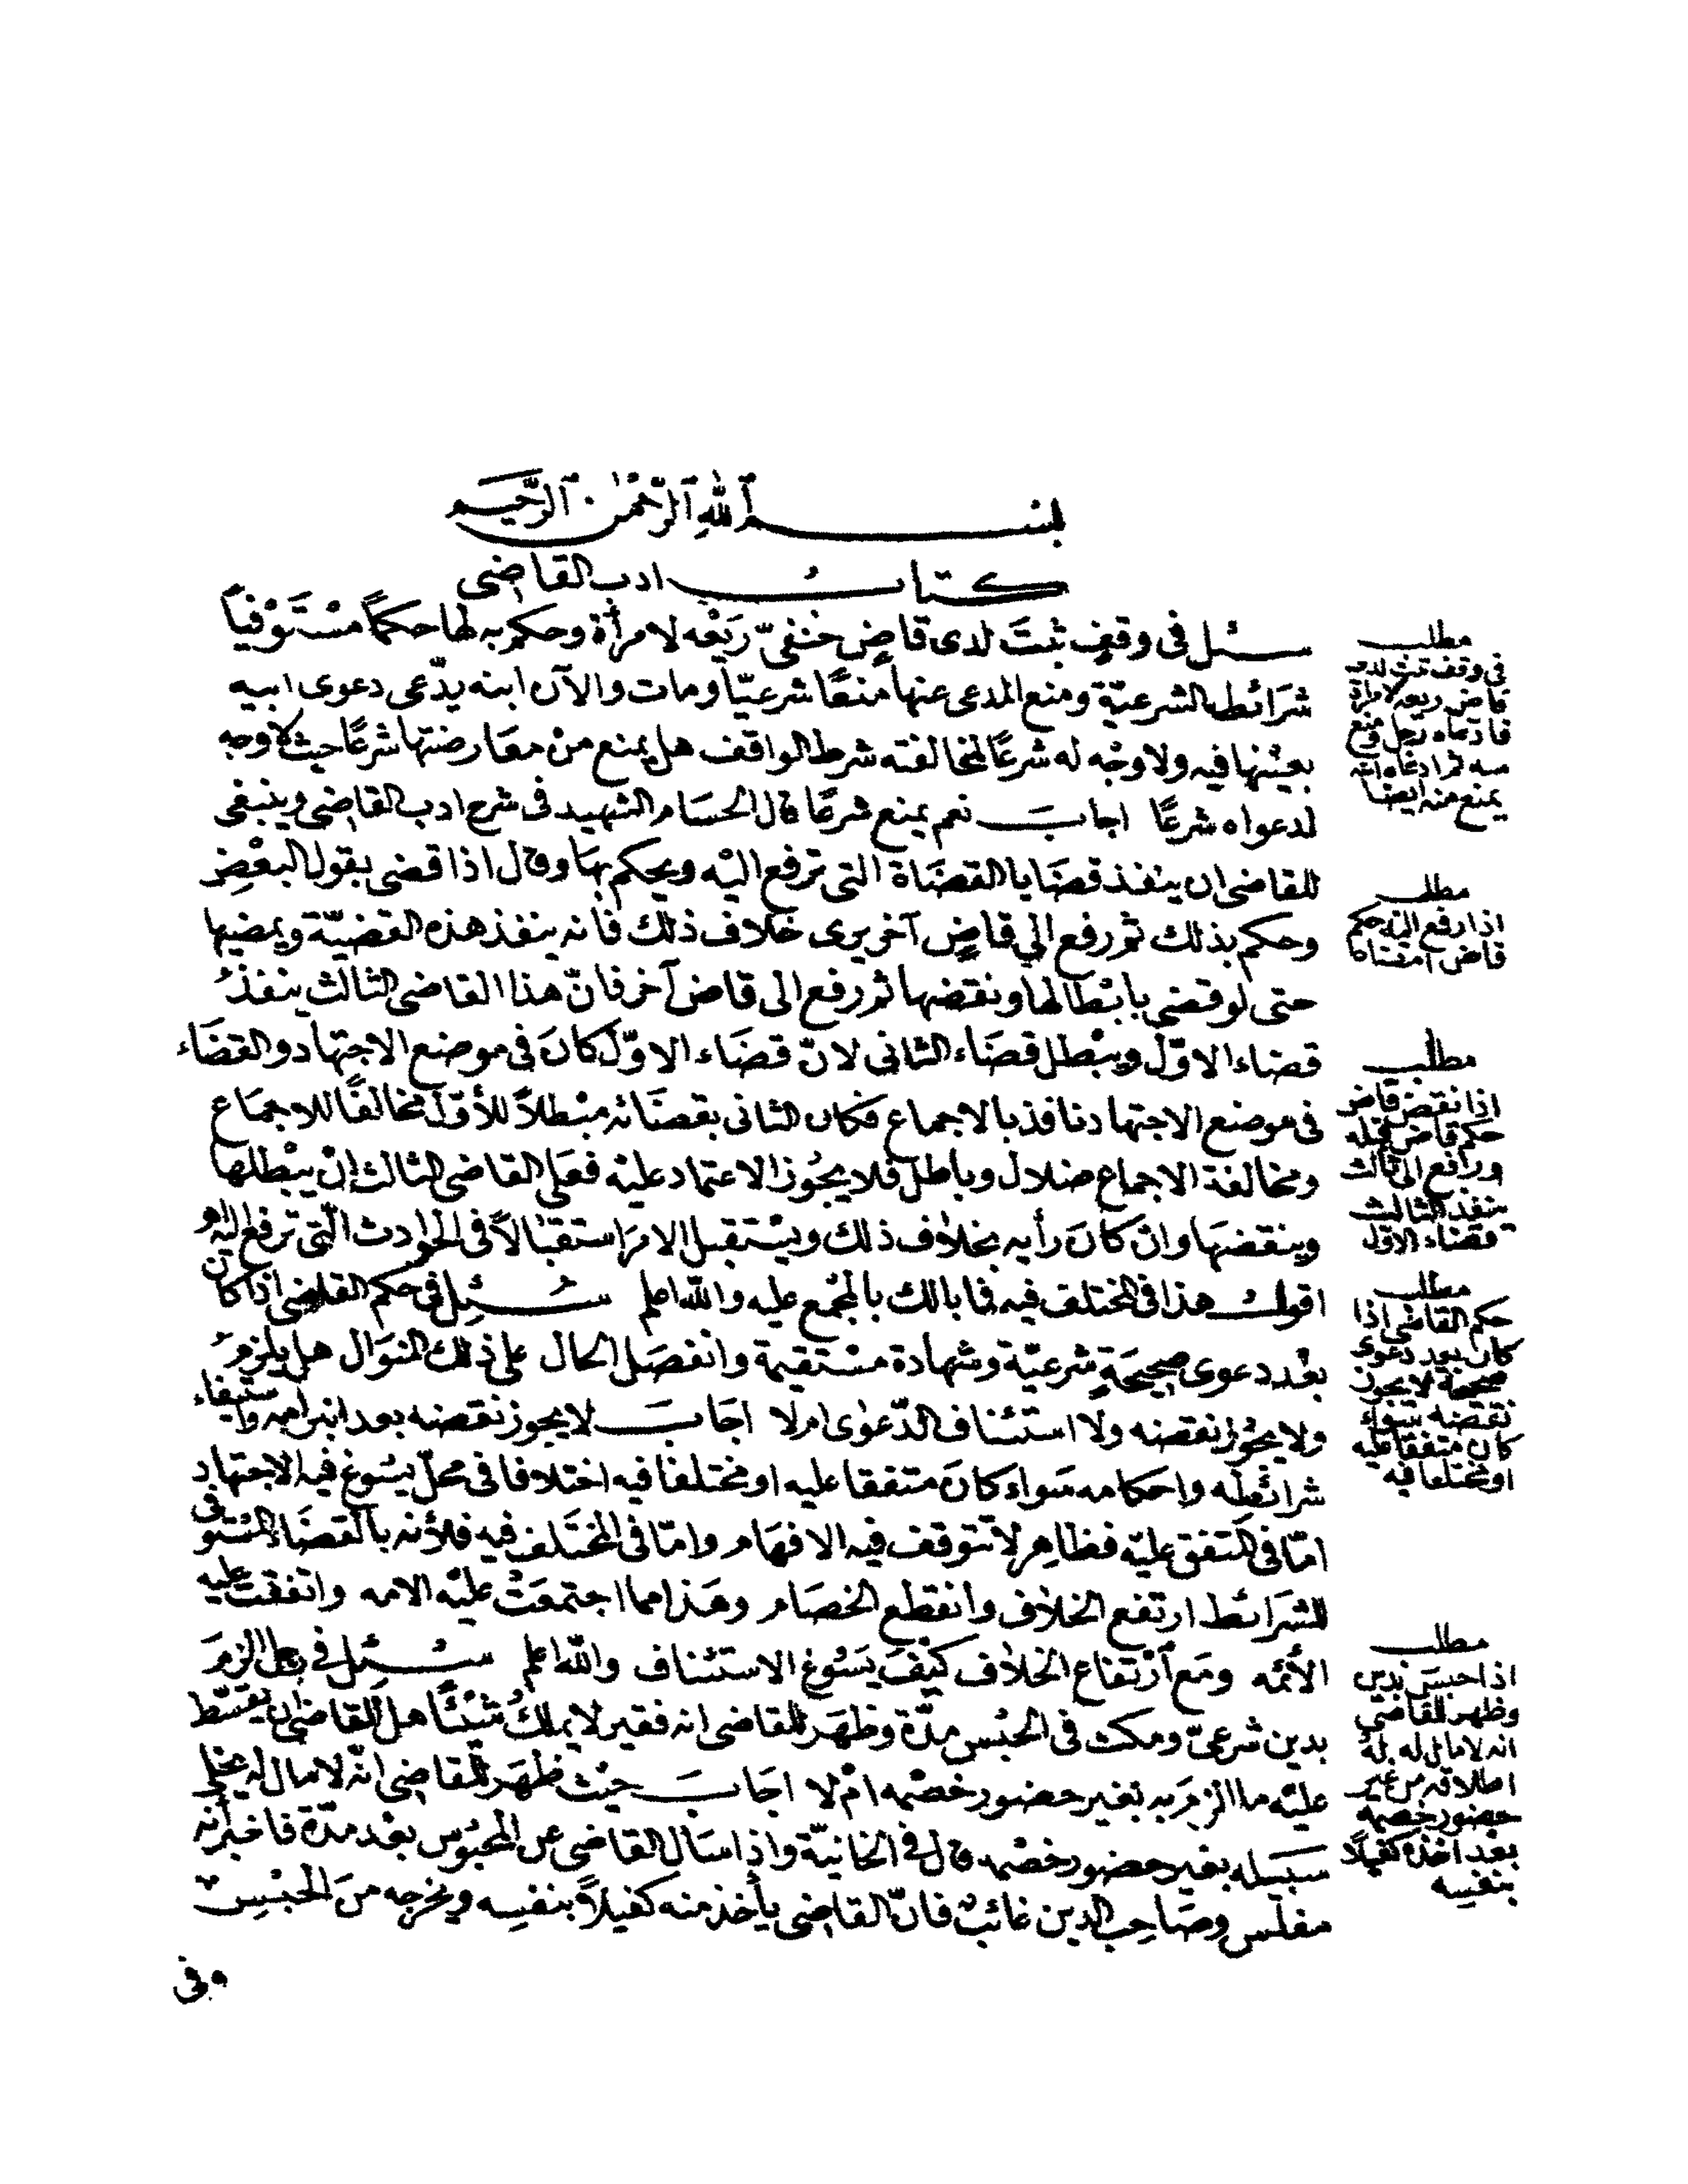 بسم الله الرحمن الرحيم
كتاب ادب القاضى
سئل فى وقفٍ ثبتَ لدى قاضٍ حنفىّ رَيْعه لامرأة وحكم به لها حكماً مسْتَوْفياً
شرَائط الشرعيّة ومنع المدعى عنها منعًا شرعيّا ومات والآن ابنه يدّعى دعوى ابيه
بعيْنها فيه ولا وجْه له شرعًا لمخالفته شرط الواقف هل يمنع منْ معَارضتها شرعًا حيث لا وجه
لدعواه شرعًا اجابَ نعم يمنع شرعًا قال الحسَام الشهيد فى شرح ادب القاضى وينبغى
للقاضى ان ينفذ قضَايا القضَاة التى ترفع اليْه ويحكم بهَا وقال اذا قضى بقول البعْضِ
وحكم بذلك ثم رفع الى قاضٍ آخر يرى خلاف ذلك فانه ينفذ هذه القضيّة ويمضيها
حتى لو قضى بابْطالها ونقضها ثم رفع الى قاض آخر فانّ هذا القاضى الثالث ينفذُ
قضاء الاوّل ويبْطل قضَاء الثانى لانّ قضَاء الاوّل كانَ فى موضع الاجتهاد والقضَاء
فى موضع الاجتهاد نافذ بالاجماع فكان الثانى بقضَائه مبْطلاً للأوّل مخالفًا للاجمَاع
ومخالفة الاجماع ضلال وباطل فلا يجُوز الاعتماد عليْه فعَلى القاضى الثالث إنْ يبْطلها
وينقضهَا وانْ كانَ رأيه بخلاف ذلك ويسْتقبل الامرَ استقبَالاً فى الحوادث الّتى ترفع اليه
اقول هذا فى المختلف فيه فما بالك بالمجْمع عليه والله اعلم سُئِل فى حكم القاضى اذا كان
بعْد دعوى صحيحَةٍ شرعيّة وشهادة مسْتقيمة وانفصَل الحال على ذلك المنوَال هل يلزمُ
ولا يجُوز نقضه ولا استئناف الدّعوٰى ام لا اجَابَ لا يجوز نقضه بعد انبرامه واستيفاء
شرائطه واحكامه سَواء كانَ متفقا عليه او مختلفا فيه اختلافا فى محلّ يسُوغ فيه الاجتهاد
امّا فى المتفق عليْه فظاهِر لا تتوقف فيه الافهَام وامّا فى المختَلف فيه فلأنه بالقضَاء المستوفى
للشرَائط ارتفع الخلاف وانقطع الخصَام وهَذا مما اجتمعَتْ عليْه الامه واتفقتْ عليه
الأئمّه ومَع ارْتفاع الخلاف كيْفَ يَسُوغ الاستئناف والله اعلم سُئِل فى رجل الزمَ
بدين شرعىّ ومكث فى الحبْس مدّة وظهَر للقاضى انه فقير لا يملكُ شيْئًا هل للقاضى ان يقسّط
عليْه ما الزمَ به بغير حضور خصْمه امْ لا اجَابَ حيْث ظهَر للقاضى انّه لا مال له يخلى
سَبيله بغير حضور خصْمه قال فى الخانيّة واذا سَال القاضى عن المحبُوس بعْد مدّة فاخبر أنه
مفلس وصَاحِب الدين غائبٌ فانّ القاضى يأخذ منه كفيلاً بنفسِه ويخرجه منَ الحبْسِ
وفى
مطلب
فى وقف ثبت لدى
قاض ريعه لامرأة
فادّعاه رجل ومنع
منه ثم ادعاه ابنه
يمنع منه ايضا
مطلب
اذا رفع اليه حكم
قاض امضاه
مطلب
اذا نقض قاض
حكم قاض قبله
ورفع الى ثالث
ينفذ الثالث
قضاء الاول
مطلب
حكم القاضى اذا
كان بعد دعوى
صحيحة لا يجوز
نقضه سواء
كان متفقا عليه
او مختلفا فيه
مطلب
اذا حبسَ بدين
وظهر للقاضى
انه لا مال له له
اطلاقه من غير
حضور خصمه
بعد اخذه كفيلاً
بنفسِه